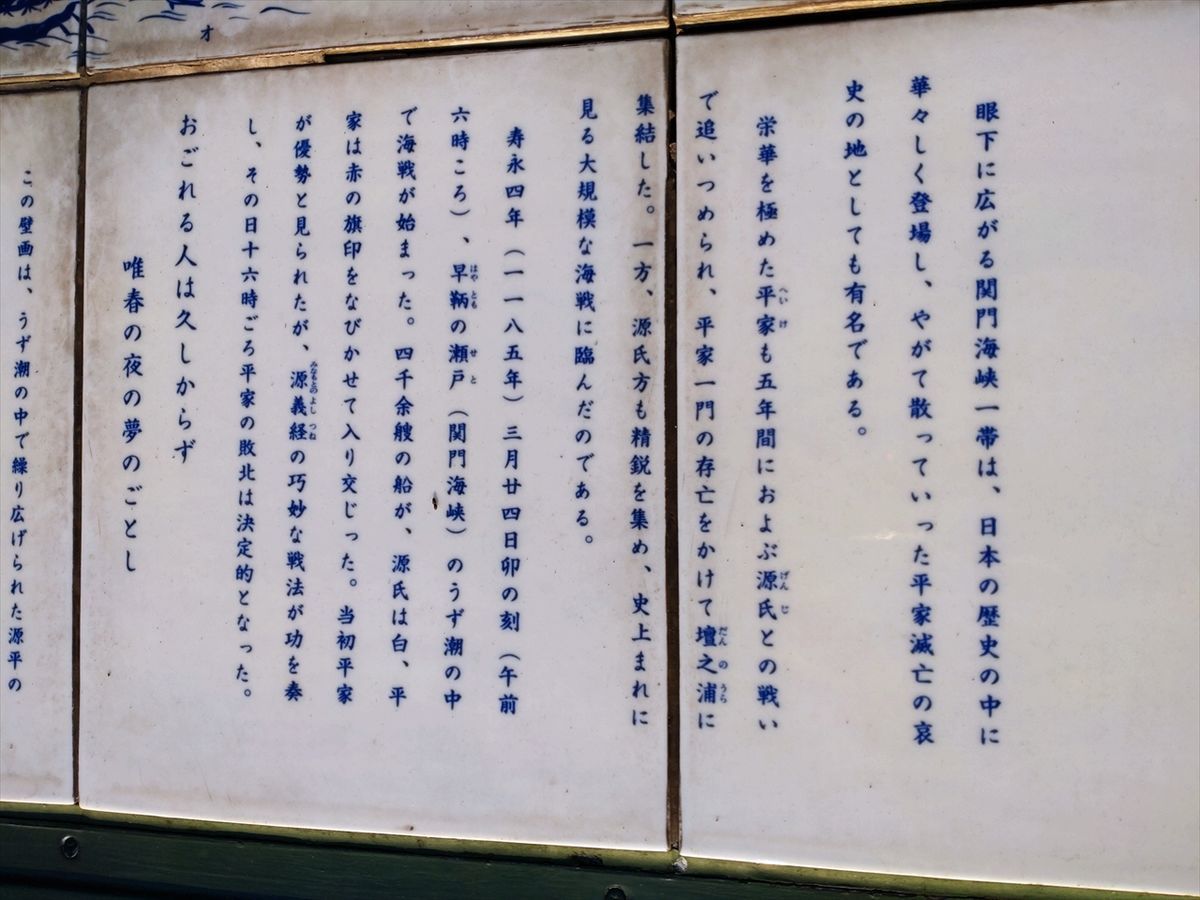 眼下に広がる関門海峡一帯は、日本の歴史の中に
華々しく登場し、やがて散っていった平家滅亡の哀
史の地としても有名である。
栄華を極めた平家も五年間におよぶ源氏との戦い
で追いつめられ、平家一門の存亡をかけて壇之浦に
集結した。一方、源氏方も精鋭を集め、史上まれに
見る大規模な海戦に臨んだのである。
寿永四年（一一八五年）三月廿四日卯の刻（午前
六時ころ）、早鞆の瀬戸（関門海峡）のうず潮の中
で海戦が始まった。四千余艘の船が、源氏は白、平
家は赤の旗印をなびかせて入り交じった。当初平家
が優勢と見られたが、源義経の巧妙な戦法が功を奏
し、その日十六時ごろ平家の敗北は決定的となった。
おごれる人は久しからず
唯春の夜の夢のごとし
この壁画は、うず潮の中で繰り広げられた源平の
オ